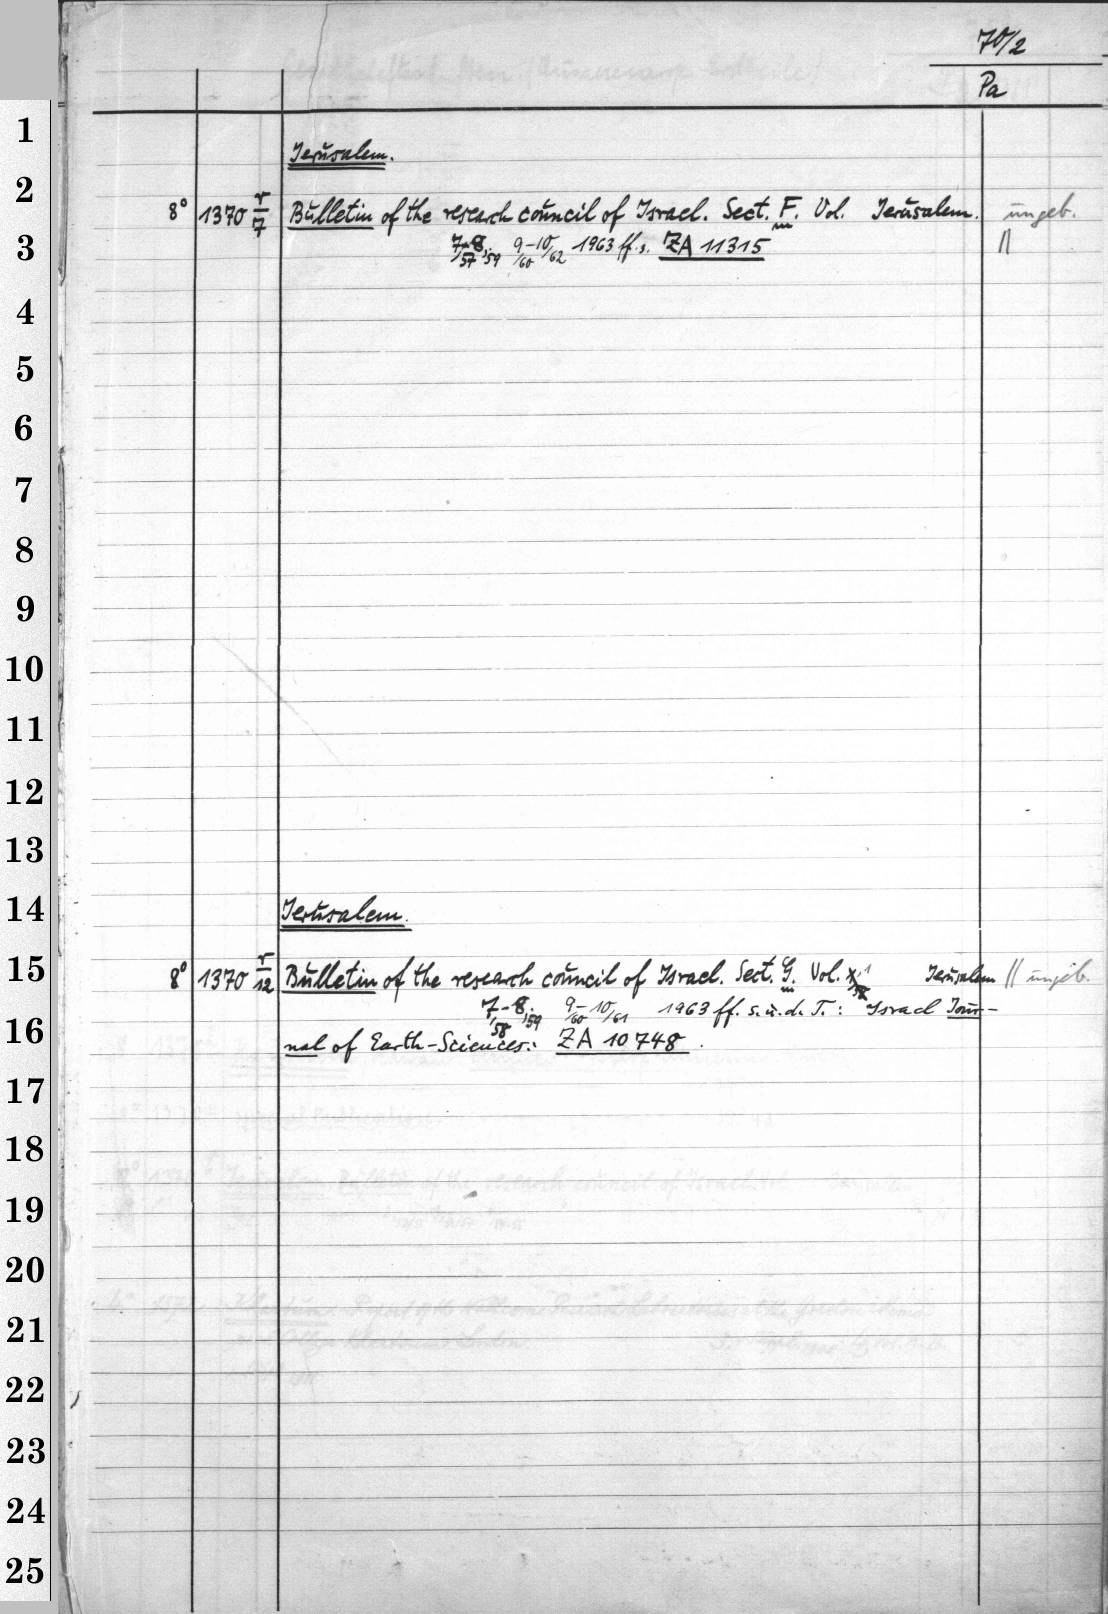 70/2
Pa
1
Jerusalem.
2
8° 1370 r/7 Bulletin of the research council of Israel. Sect. F. Vol. Jerusalem. ungeb.
3
7/57-8/59, 9/60-10/62 1963 ff. s. ZA 11315 ||
4
5
6
7
8
9
10
11
12
13
14
Jerusalem.
15
8° 1370 r/12 Bulletin of the research council of Israel. Sect. G. Vol. Jerusalem || ungeb.
7/58-8/59, 9/60-10/61 1963 ff. s. u. d. T.: Israel Jour-
16
nal of Earth-Sciences: ZA 10748.
17
18
19
20
21
22
23
24
25